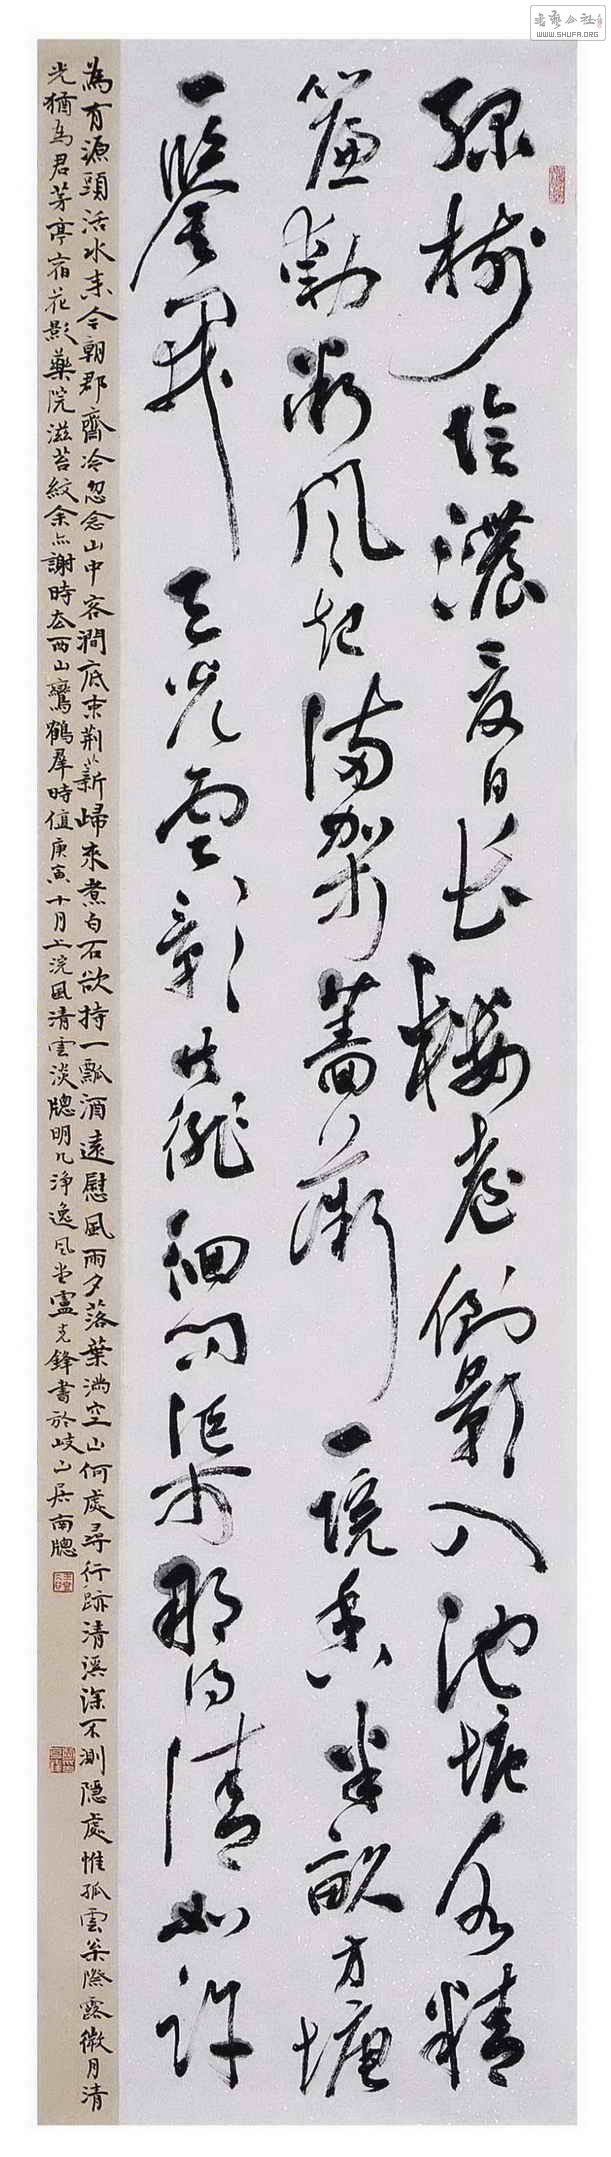 書藝公社
WWW.SHUFA.ORG
緑樹陰濃夏日长樓臺倒影入池塘水精
簾動微風起滿架薔薇一院香半畝方塘
一鑒開天光雲影共徘徊問渠那得清如許
為有源頭活水来今朝郡齋冷忽念山中客澗底束荆薪歸來煮白石欲持一瓢酒遠慰風雨夕落葉滿空山何處尋行跡清溪深不測隱處惟孤雲松際露微月清
光猶為君茅亭宿花影藥院滋苔紋余亦謝時去西山鸞鶴羣時值庚寅十月上浣風清雲淡牕明几淨逸風堂盧克鋒書於岐山居南牕